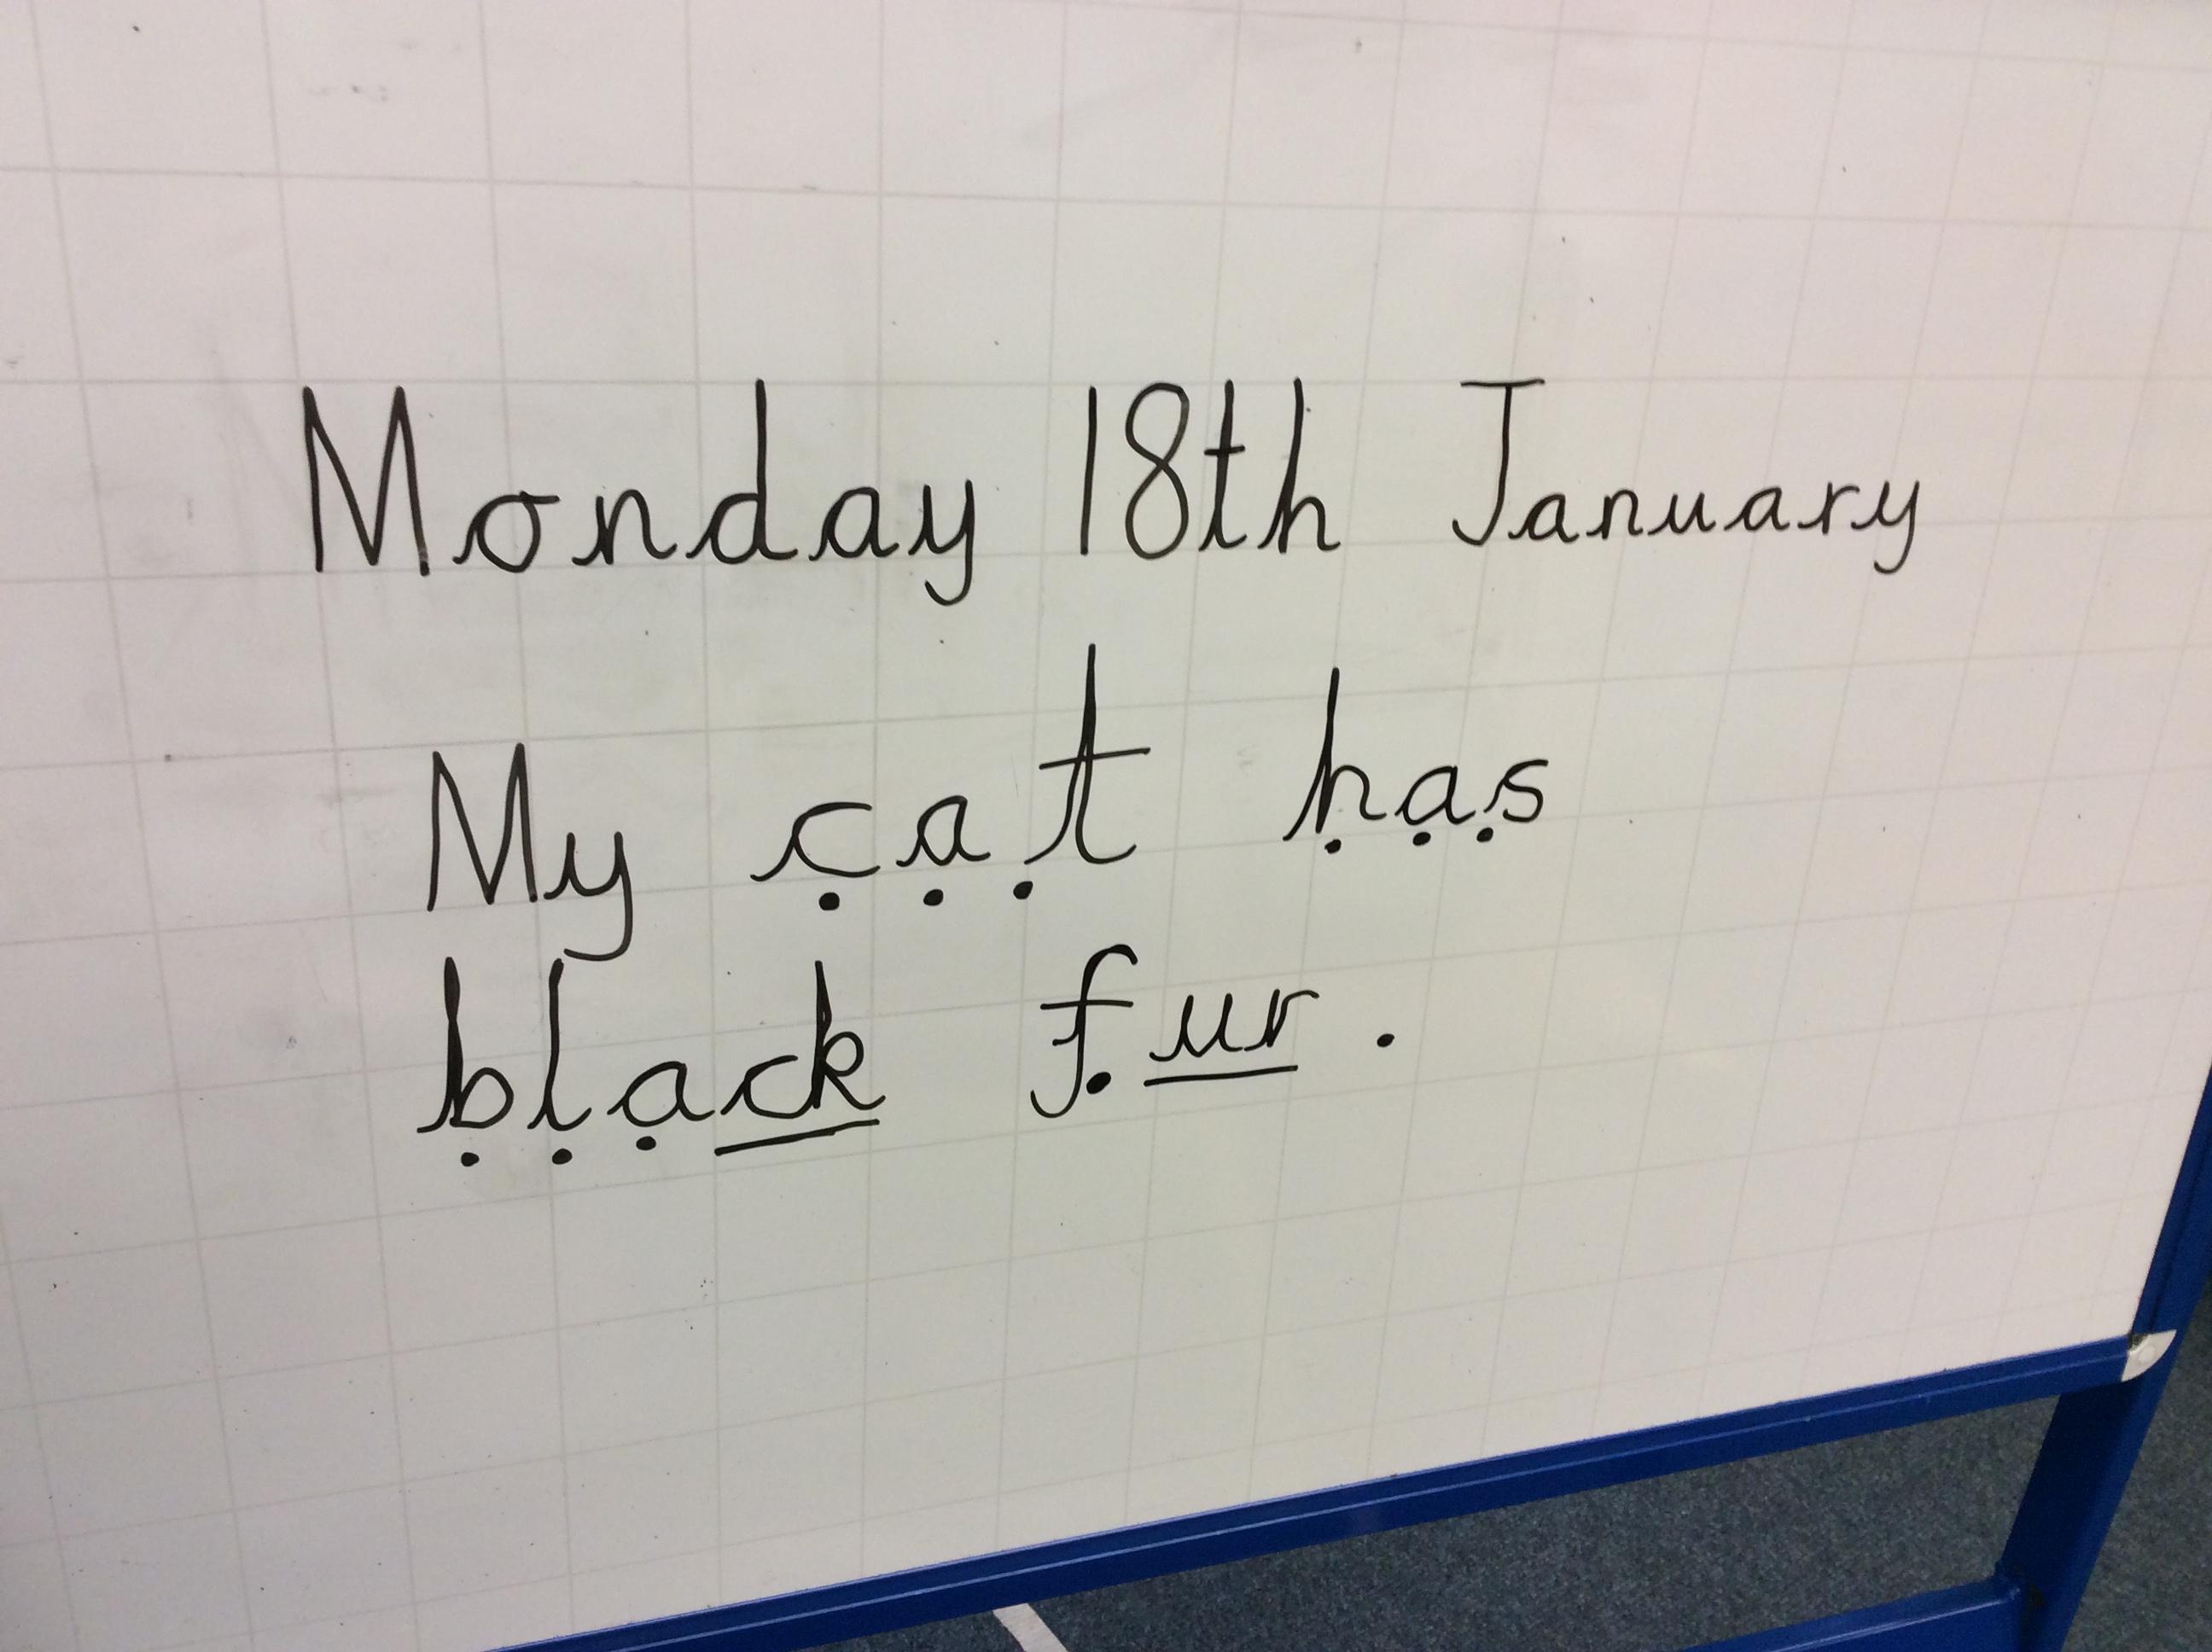 Monday 18th January
My cat has
black fur.